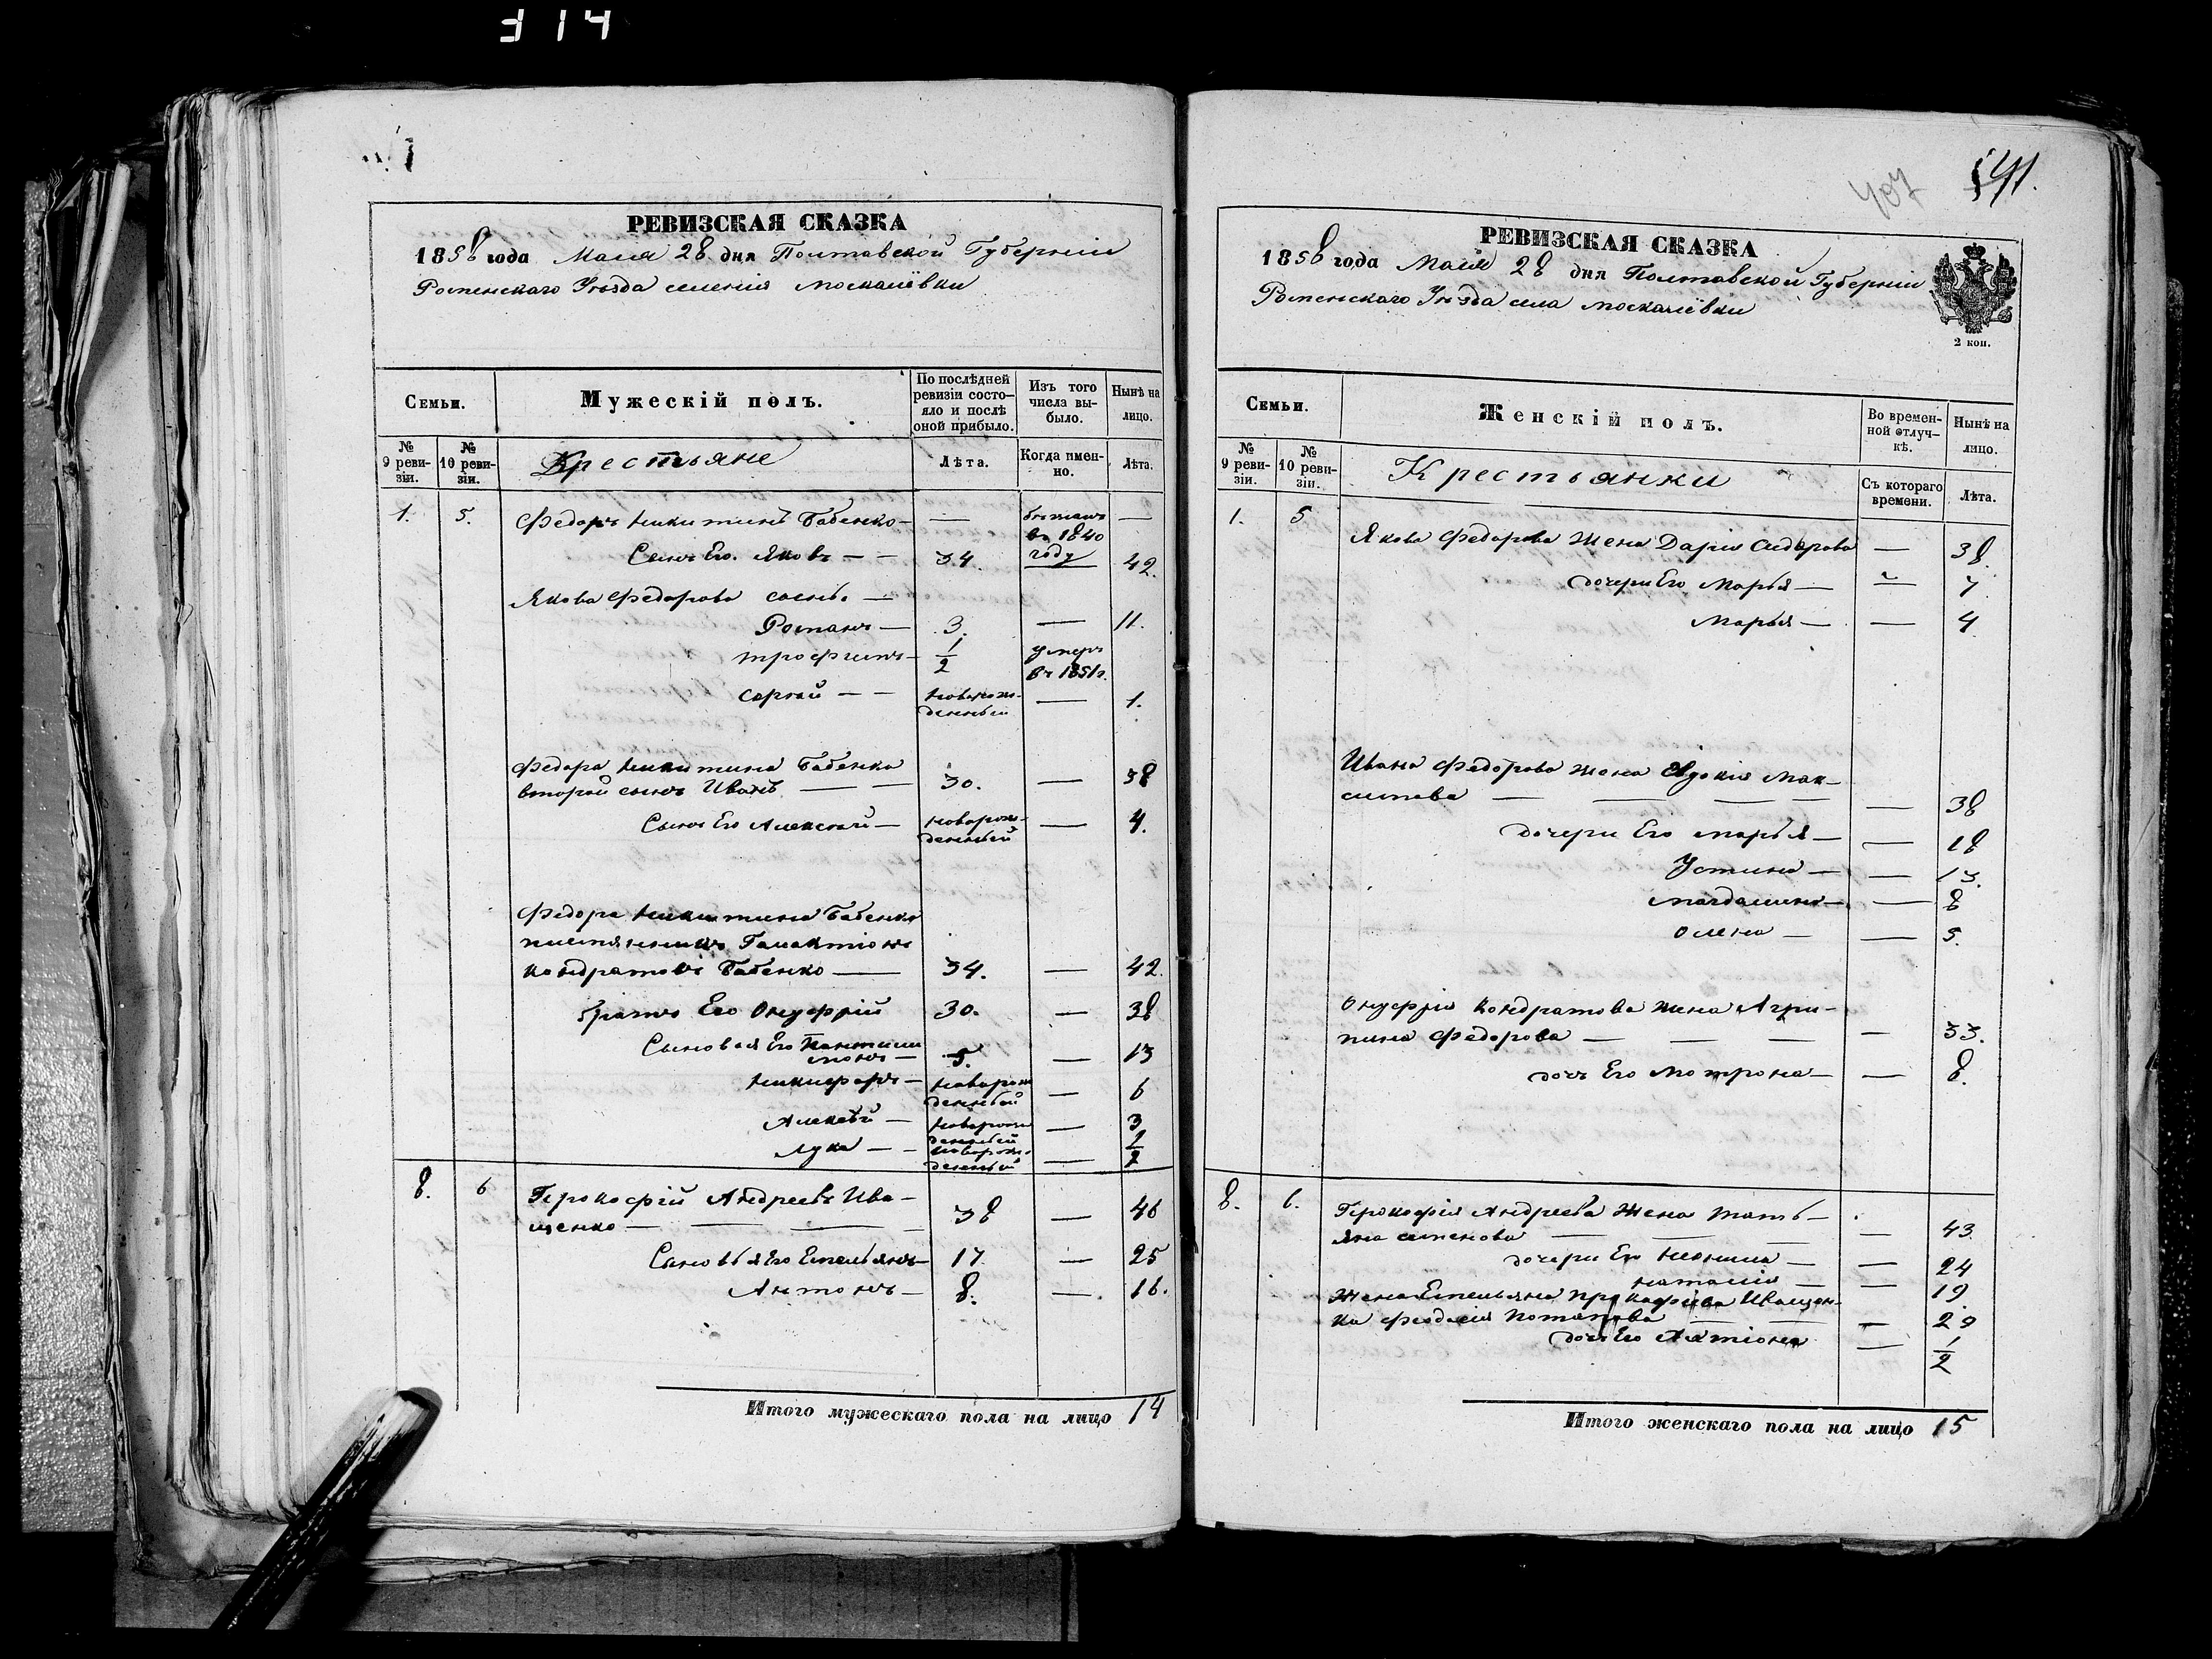 314
РЕВИЗСКАЯ СКАЗКА
1858 года Маія 28 дня Полтавской Губерніи
Роменскаго Уѣзда селенія Москалівки
Семьи.
Мужескій полъ.
По послѣдней ревизіи состо-яло и послѣ оной прибыло.
Изъ того числа вы-было.
Нынѣ на лицо.
№ 9 реви-зіи.
№ 10 реви-зіи.
Крестьяне
Лѣта.
Когда имен-но.
Лѣта.
1. 5. Федоръ Никитинъ Бабенко — — бѣжалъ въ 1840 году —
Сынъ Его Яковъ — — 34. 42.
Якова Федорова сыны —
Романъ — 3. — 11.
Трофимъ — 1/2 умеръ въ 1851 г.
Сергей — — новорож-денный — 1.
Федора Никитина Бабенка
второй сынъ Иванъ — — 30. — 38
Сынъ Его Алексей — новорож-денный — 4.
Федора Никитина Бабенка
племянникъ Галактіонъ
Кондратовъ Бабенко — 34. — 42.
Братъ Его Онуфрій 30. — 38
Сыновья Его Пантили
монъ — 5. — 13
Никифоръ — новорож денный — 6
Алексей — новорож денный — 3
Лука — — новорож-денный — 1/2
8. 6 Прокофій Андреевъ Ива-
щенко — — — 38 — 46
Сыновья Его Емельянъ — 17 — 25
Антонъ — 8. — 16.
Итого мужескаго пола на лицо 14
407 541.
РЕВИЗСКАЯ СКАЗКА
1858 года Маія 28 дня Полтавской Губерніи
Роменскаго Уѣзда села Москалівки
2 коп.
Семьи.
Женскій полъ.
Во времен-ной отлуч-кѣ.
Нынѣ на лицо.
№ 9 реви-зіи.
№ 10 реви-зіи.
Крестьянки
Съ котораго времени.
Лѣта.
1. 5 Якова Федорова Жена Дарія Сидорова — 38.
дочери Его Марья — — 7
Марья — — 4
Ивана Федорова жена Евдокія Мак-
симова — — — — — 38
дочери Его Марья — — 18
Устина — — 13.
Магдалина — — 8
Олена — — 5.
Онуфрія Кондратова жена Агри-
пина Федорова — — — — 33.
дочь Его Мотрона — — 8.
8. 6. Прокофія Андреева Жена Тать-
яна Семенова — — — — 43
дочери Его — — 24
Наталія — — 19.
Жена Емельяна Прокофіева Иващен-
ка Феодосія Потапова — — — 20
дочь Его — 1/2
Итого женскаго пола на лицо 15